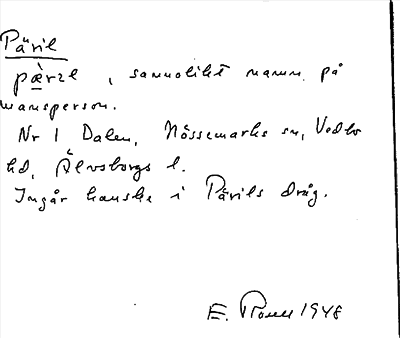 Päril
pærəl, sannolikt namn på
mansperson.
Nr 1 Dalen, Nössemarks sn, Vedbo
hd, Älvsborgs l.
Ingår kanske i Pärils dråg.
E. 1948